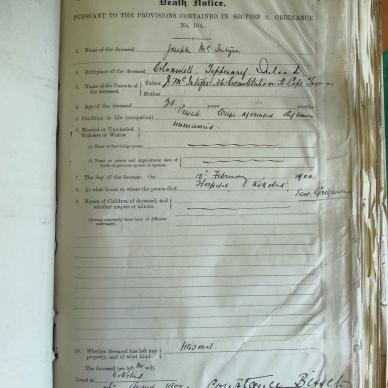 Death Notice.
PURSUANT TO THE PROVISIONS CONTAINED IN SECTION 9, ORDINANCE
No. 104.
1. Name of the deceased Joseph Mc Intyre
2. Birthplace of the deceased Clonmell, Tipperary, Ireland
3. Names of the Parents of the deceased. Father J. McIntyre 36 Constitution St Cape Town
Mother
4. Age of the deceased years months
5. Condition in life (occupation) Private Cape Mounted
6. Married or Unmarried, Widower or Widow unmarried
(a) Name of Surviving spouse.
(b) Name or names and approximate date of death of previous spouse or spouses.
7. The day of the decease: On February 1900
8. At what house or where the person died: Hospital Kokstad East
9. Names of Children of deceased, and whether majors or minors.
Stating separately those born of different marriages.
10. Whether deceased has left any property, and of what kind: Personal
The deceased has left no will.
Dated at Kokstad
1900